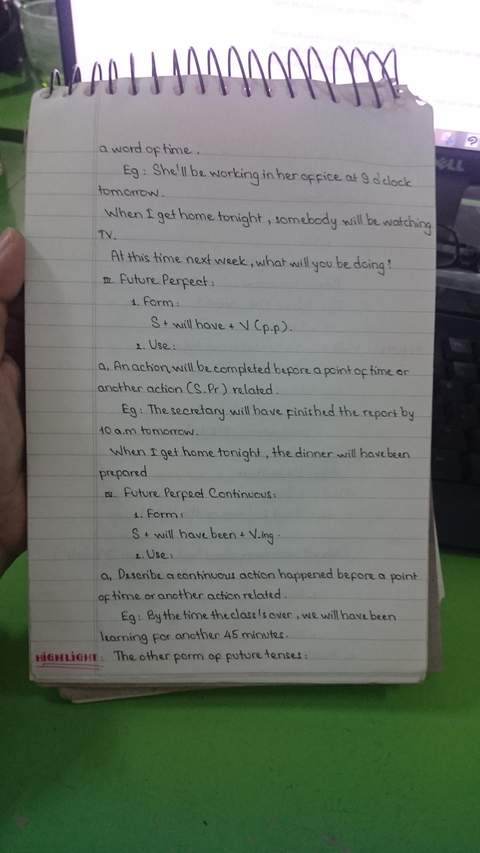 a word of time.
Eg: She'll be working in her office at 9 o'clock
tomorrow.
When I get home tonight, somebody will be watching
TV.
At this time next week, what will you be doing?
III. Future Perfect:
1. Form:
S + will have + V (p.p).
2. Use:
a, An action will be completed before a point of time or
another action (S.Pr) related.
Eg: The secretary will have finished the report by
10 a.m tomorrow.
When I get home tonight, the dinner will have been
prepared
IV. Future Perfect Continuous:
1. Form:
S + will have been + V.ing.
2. Use:
a, Describe a continuous action happened before a point
of time or another action related.
Eg: By the time the class's over, we will have been
learning for another 45 minutes.
HIGHLIGHT: The other form of future tenses:
DELL